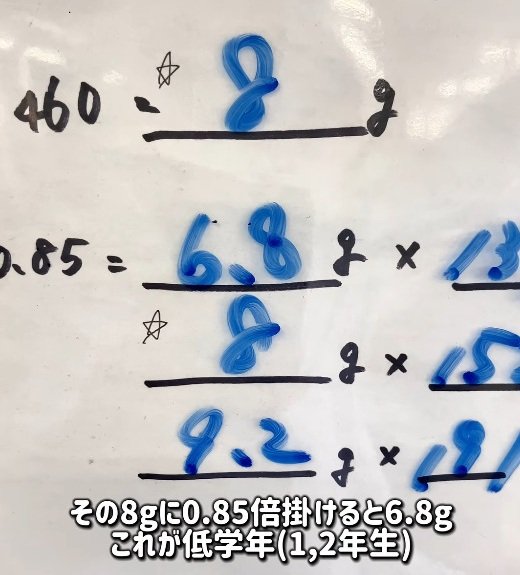 460 = ☆ 8 g
0.85 = 6.8 g × 13
☆ 8 g × 15
9.2 g × 19
その8gに0.85倍掛けると6.8g
これが低学年(1,2年生)